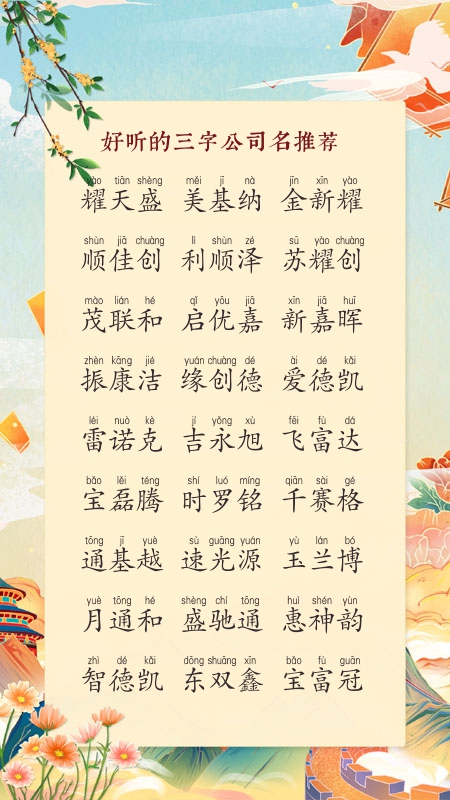 好听的三字公司名推荐
yào tiān shèng měi jī nà jīn xīn yào
耀天盛 美基纳 金新耀
shùn jiā chuàng lì shùn zé sū yào chuàng
顺佳创 利顺泽 苏耀创
mào lián hé qǐ yōu jiā xīn jiā huī
茂联和 启优嘉 新嘉晖
zhèn kāng jié yuán chuàng dé ài dé kǎi
振康洁 缘创德 爱德凯
léi nuò kè jí yǒng xù fēi fù dá
雷诺克 吉永旭 飞富达
bǎo lěi téng shí luó míng qiān sài gé
宝磊腾 时罗铭 千赛格
tōng jī yuè sù guāng yuán yù lán bó
通基越 速光源 玉兰博
yuè tōng hé shèng chí tōng huì shén yùn
月通和 盛驰通 惠神韵
zhì dé kǎi dōng shuāng xīn bǎo fù guān
智德凯 东双鑫 宝富冠